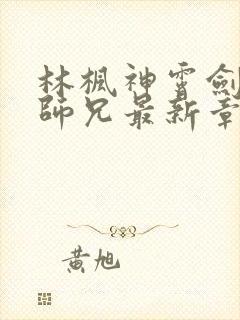 林楓神霄劍
師兄最新章
黃旭